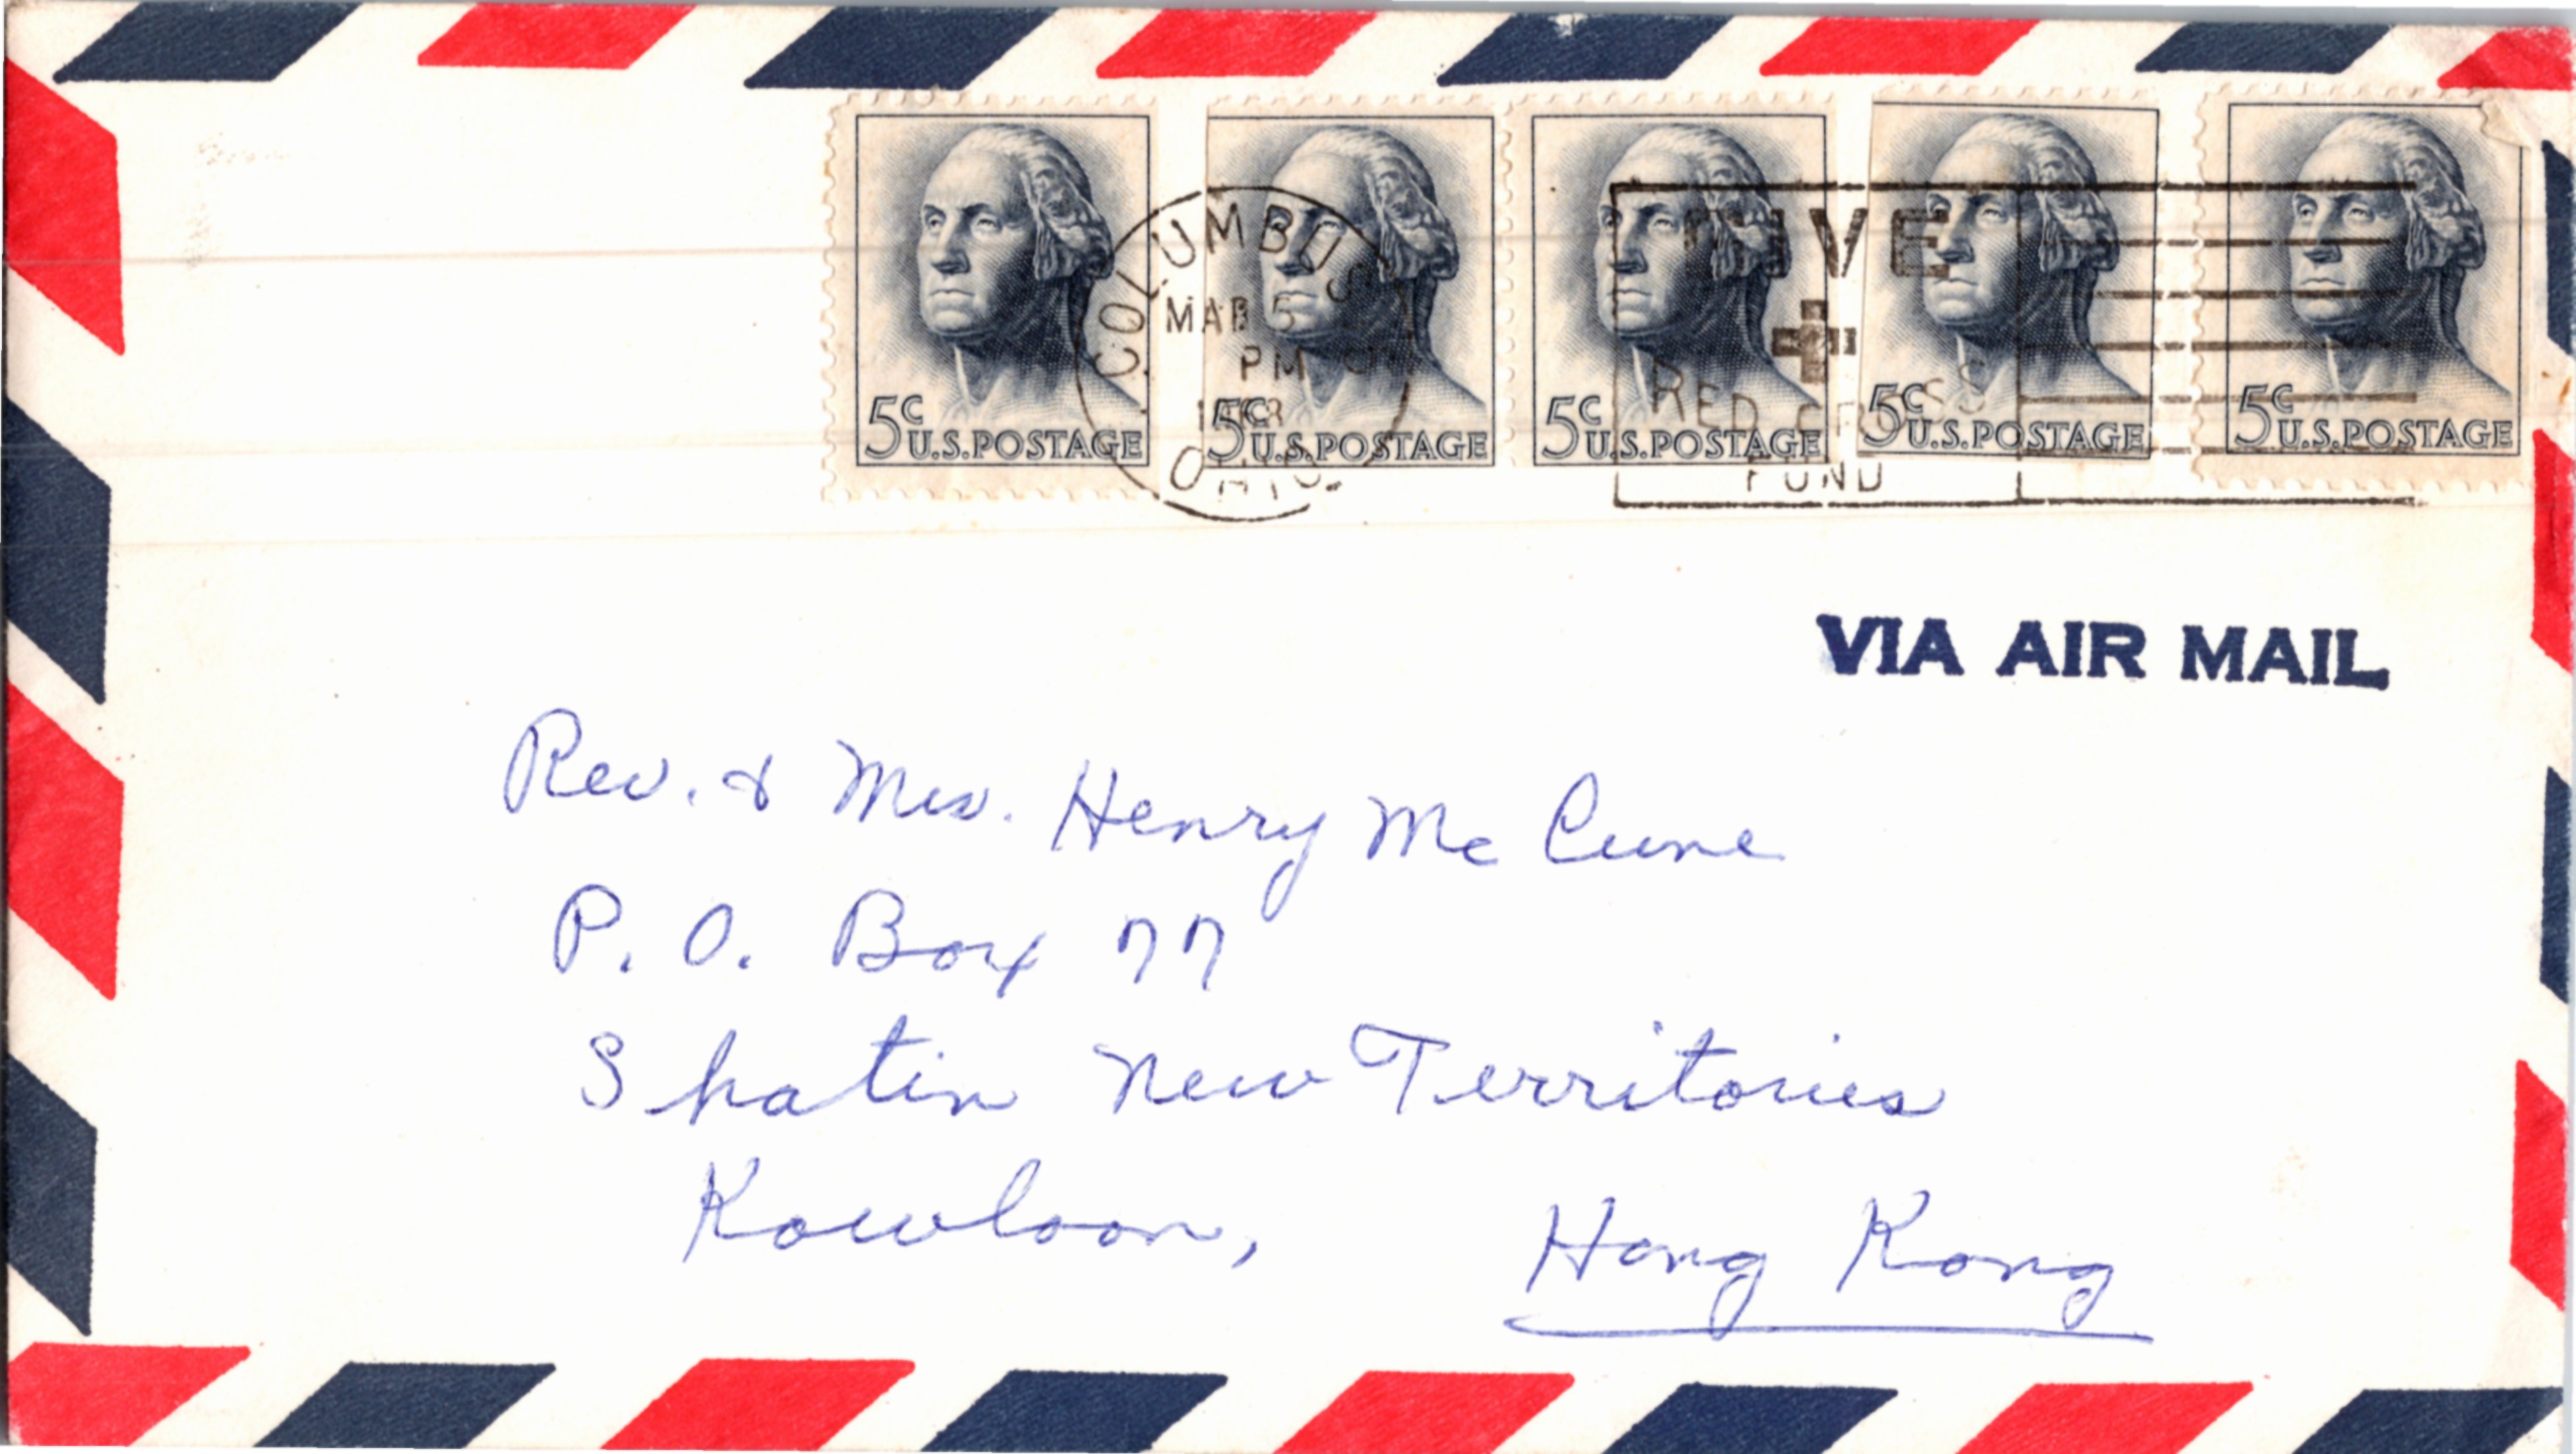 5c U.S.POSTAGE
5c U.S.POSTAGE
5c U.S.POSTAGE
5c U.S.POSTAGE
5c U.S.POSTAGE
COLUMBUS
MAR 5
PM
OHIO.
GIVE
RED CROSS
FUND
VIA AIR MAIL
Rev. & Mrs. Henry Mc Cune
P. O. Box 77
Shatin New Territories
Kowloon, Hong Kong